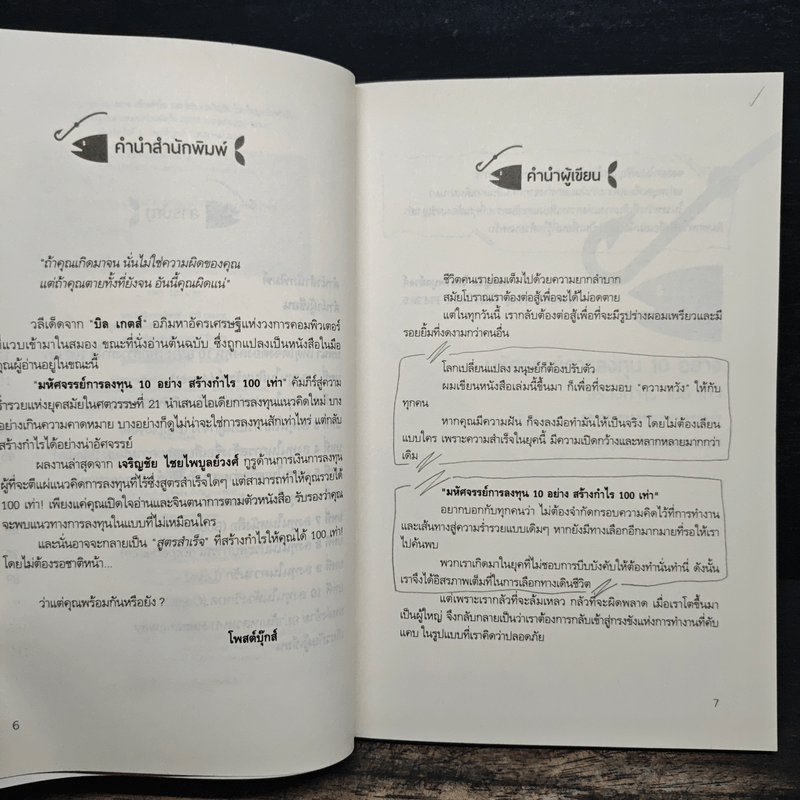 คำนำสำนักพิมพ์
"ถ้าคุณเกิดมาจน นั่นไม่ใช่ความผิดของคุณ
แต่ถ้าคุณตายทั้งที่ยังจน อันนี้คุณผิดแน่"
วลีเด็ดจาก "บิล เกตส์" อภิมหาอัครเศรษฐีแห่งวงการคอมพิวเตอร์
ที่แวบเข้ามาในสมอง ขณะที่นั่งอ่านต้นฉบับ ซึ่งถูกแปลงเป็นหนังสือในมือ
คุณผู้อ่านอยู่ในขณะนี้
"มหัศจรรย์การลงทุน 10 อย่าง สร้างกำไร 100 เท่า" คัมภีร์สู่ความ
ร่ำรวยแห่งยุคสมัยในศตวรรษที่ 21 นำเสนอไอเดียการลงทุนแนวคิดใหม่ บาง
อย่างเกินความคาดหมาย บางอย่างก็ดูไม่น่าจะใช่การลงทุนสักเท่าไหร่ แต่กลับ
สร้างกำไรได้อย่างน่าอัศจรรย์
ผลงานล่าสุดจาก เจริญชัย ไชยไพบูลย์วงศ์ กูรูด้านการเงินการลงทุน
ผู้ที่จะตีแผ่แนวคิดการลงทุนที่ไร้ซึ่งสูตรสำเร็จใดๆ แต่สามารถทำให้คุณรวยได้
100 เท่า! เพียงแค่คุณเปิดใจอ่านและจินตนาการตามตัวหนังสือ รับรองว่าคุณ
จะพบแนวทางการลงทุนในแบบที่ไม่เหมือนใคร
และนั่นอาจจะกลายเป็น "สูตรสำเร็จ" ที่สร้างกำไรให้คุณได้ 100 เท่า!
โดยไม่ต้องรอชาติหน้า...
ว่าแต่คุณพร้อมกันหรือยัง ?
โพสต์บุ๊กส์
6
คำนำผู้เขียน
ชีวิตคนเราย่อมเต็มไปด้วยความยากลำบาก
สมัยโบราณเราต้องต่อสู้เพื่อจะได้ไม่อดตาย
แต่ในทุกวันนี้ เรากลับต้องต่อสู้เพื่อที่จะมีรูปร่างผอมเพรียวและมี
รอยยิ้มที่งดงามกว่าคนอื่น
โลกเปลี่ยนแปลง มนุษย์ก็ต้องปรับตัว
ผมเขียนหนังสือเล่มนี้ขึ้นมา ก็เพื่อที่จะมอบ "ความหวัง" ให้กับ
ทุกคน
หากคุณมีความฝัน ก็จงลงมือทำมันให้เป็นจริง โดยไม่ต้องเลียน
แบบใคร เพราะความสำเร็จในยุคนี้ มีความเปิดกว้างและหลากหลายมากกว่า
เดิม
"มหัศจรรย์การลงทุน 10 อย่าง สร้างกำไร 100 เท่า"
อยากบอกกับทุกคนว่า ไม่ต้องจำกัดกรอบความคิดไว้ที่การทำงาน
และเส้นทางสู่ความร่ำรวยแบบเดิมๆ หากยังมีทางเลือกอีกมากมายที่รอให้เรา
ไปค้นพบ
พวกเราเกิดมาในยุคที่ไม่ชอบการบีบบังคับให้ต้องทำนั่นทำนี่ ดังนั้น
เราจึงได้อิสรภาพเต็มที่ในการเลือกทางเดินชีวิต
แต่เพราะเรากลัวที่จะล้มเหลว กลัวที่จะผิดพลาด เมื่อเราโตขึ้นมา
เป็นผู้ใหญ่ จึงกลับกลายเป็นว่าเราต้องการกลับเข้าสู่กรงขังแห่งการทำงานที่คับ
แคบ ในรูปแบบที่เราคิดว่าปลอดภัย
7